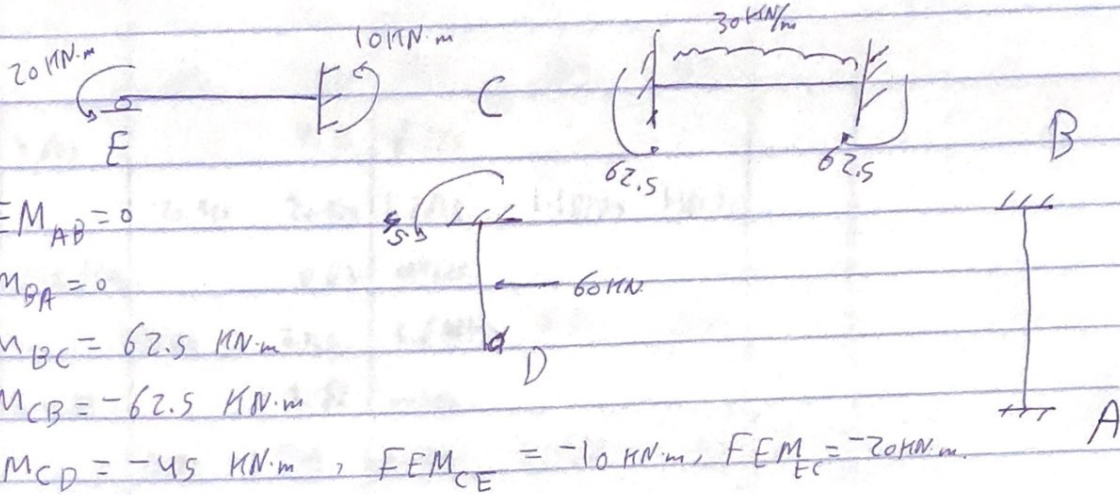 20 KN·m 10 KN·m 30 KN/m
E C B
62.5 62.5
M_AB = 0
M_BA = 0
60 KN
M_BC = 62.5 KN·m
D
M_CB = -62.5 KN·m
A
M_CD = -45 KN·m, FEM_CE = -10 KN·m, FEM_EC = -20 KN·m.